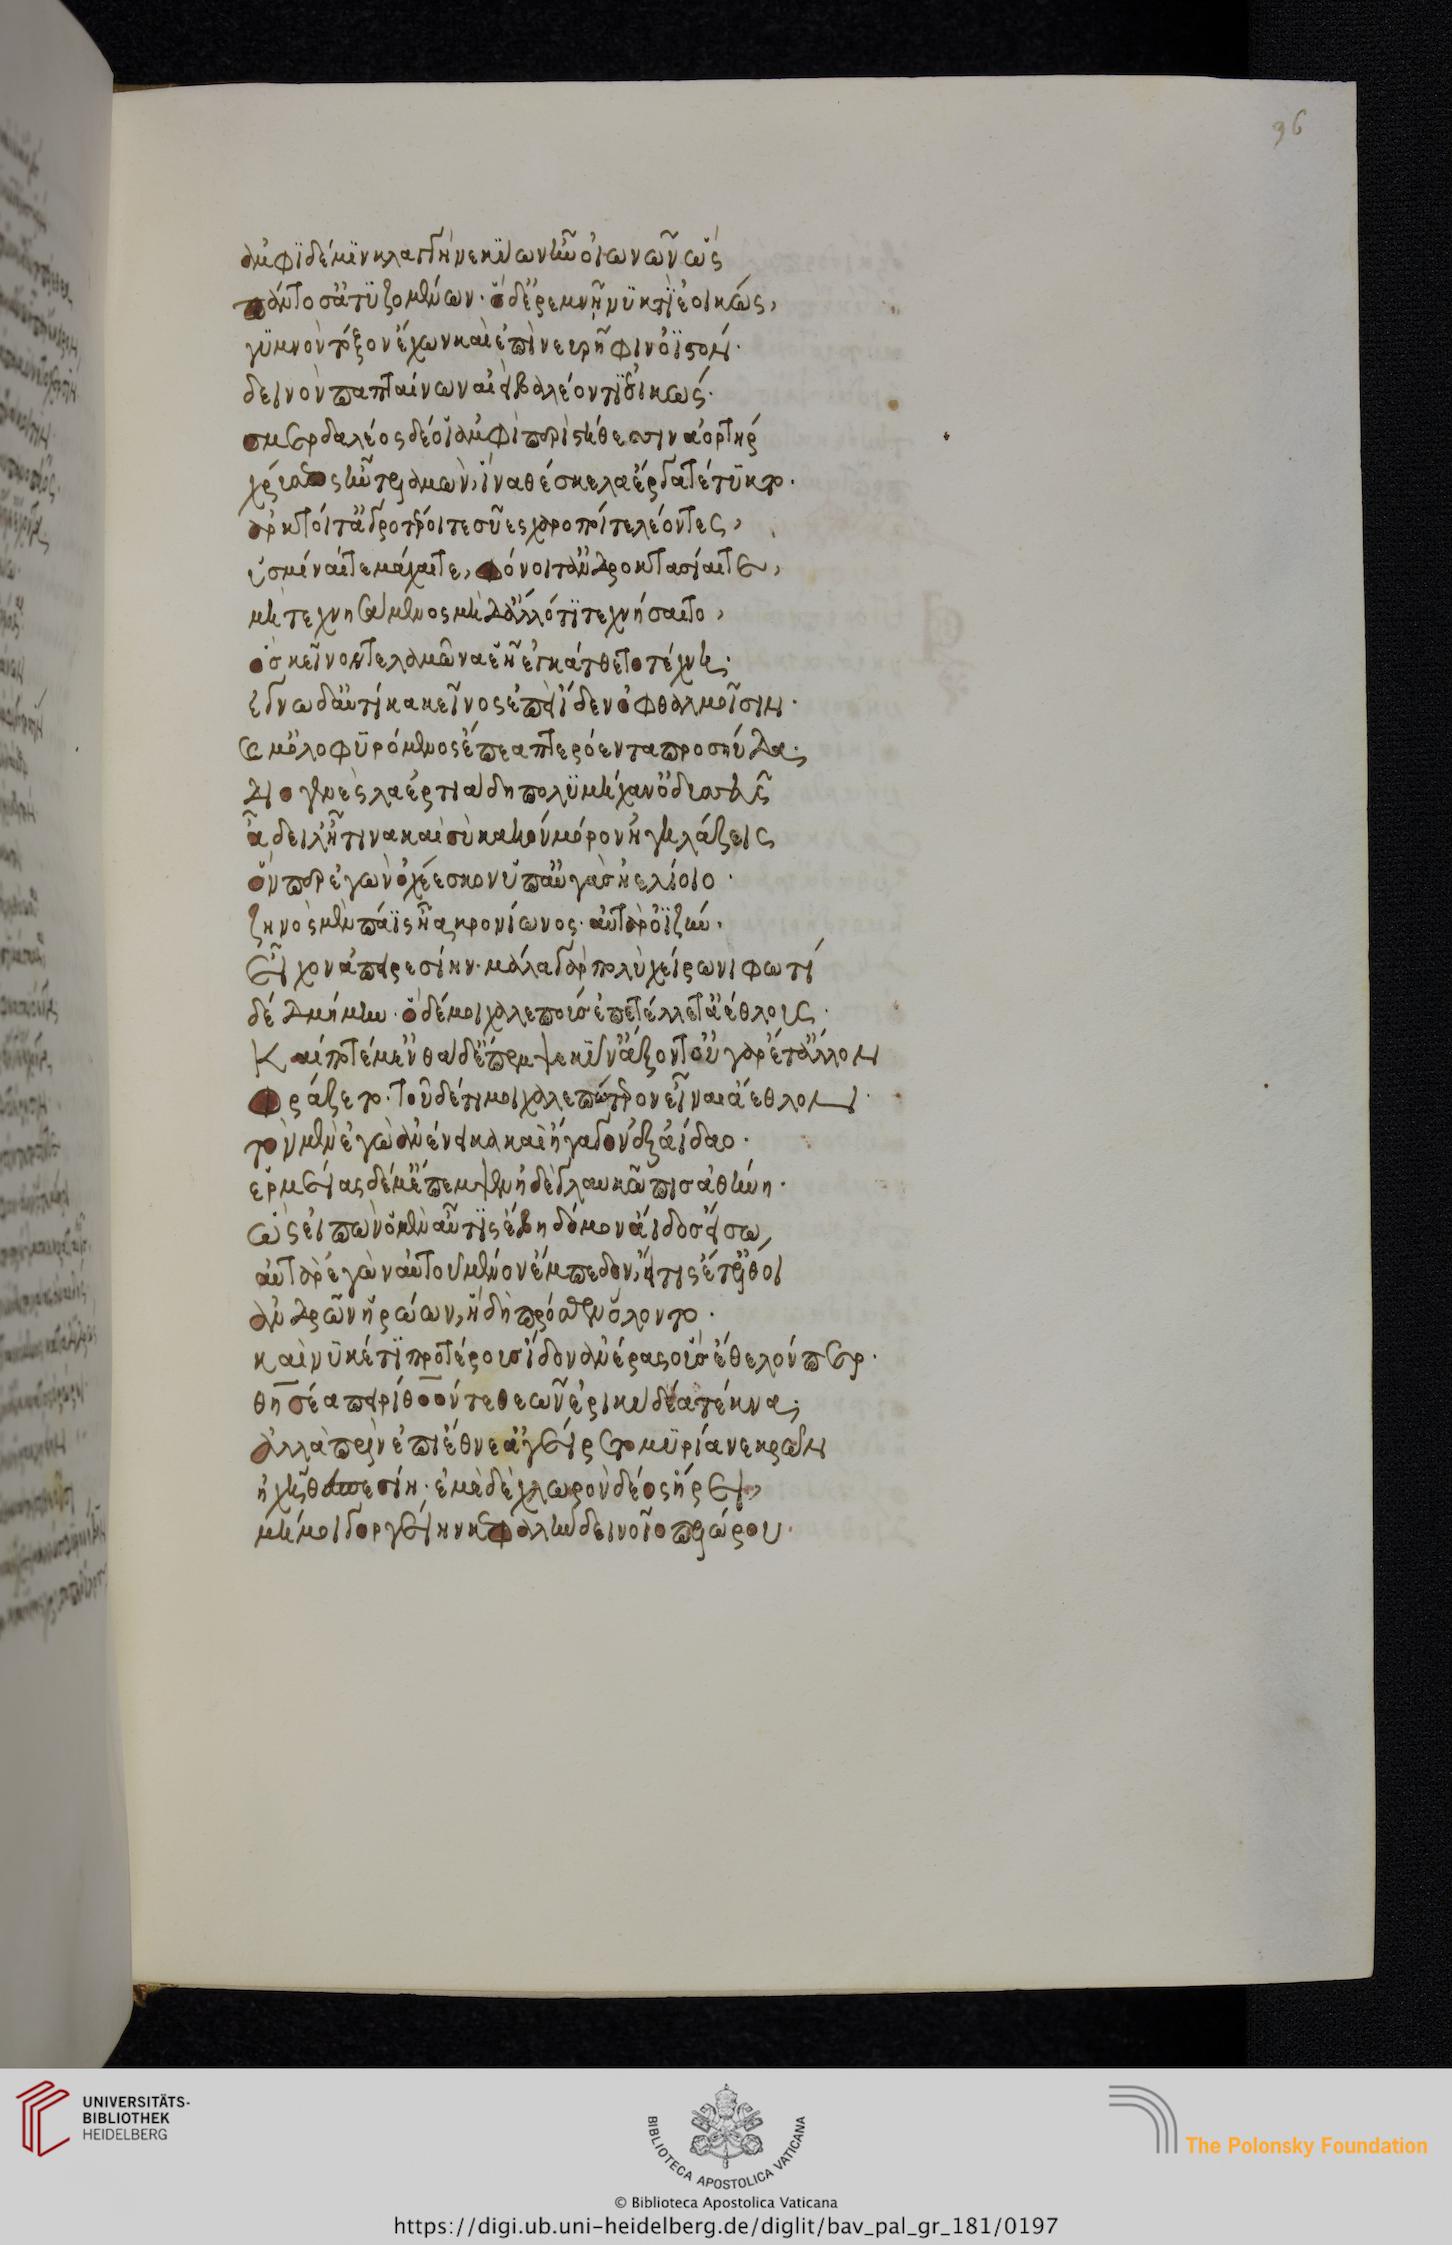 96
ἀμφὶ δέ μιν κλαγγὴ νεκύων ἦν οἰωνῶν ὣς
πάντοσ' ἀτυζομένων· ὁ δ' ἐρεμνῇ νυκτὶ ἐοικώς,
γυμνὸν τόξον ἔχων καὶ ἐπὶ νευρῆφιν ὀϊστόν·
δεινὸν παπταίνων αἰεὶ βαλέοντι ἐοικώς·
σμερδαλέος δέ οἱ ἀμφὶ περὶ στήθεσσιν ἀορτὴρ
χρύσεος ἦν τελαμών, ἵνα θέσκελα ἔργα τέτυκτο·
ἄρκτοι τ' ἀγρότεροί τε σύες χαροποί τε λέοντες,
ὑσμῖναί τε μάχαι τε, φόνοι τ' ἀνδροκτασίαι τε,
μὴ τεχνησάμενος μηδ' ἄλλό τι τεχνήσαιτο,
ὃς κεῖνον τελαμῶνα ἑῇ ἐγκάτθετο τέχνῃ·
ἔγνω δ' αὐτίκα κεῖνος ἐπεὶ ἴδεν ὀφθαλμοῖσιν·
καί μ' ὀλοφυρόμενος ἔπεα πτερόεντα προσηύδα·
διογενὲς λαερτιάδη πολυμήχαν' ὀδυσσεῦ
ἆ δείλ' ἦ τινὰ καὶ σὺ κακὸν μόρον ἡγηλάζεις
ὅν περ ἐγὼν ὀχέεσκον ὑπ' αὐγὰς ἠελίοιο·
ζηνὸς μὲν πάϊς ἦα κρονίωνος· αὐτὰρ ὀϊζὺν·
εἶχον ἀπειρεσίην· μάλα γὰρ πολὺ χείρονι φωτὶ
δεδμήμην· ὁ δέ μοι χαλεποὺς ἐπετέλλετ' ἀέθλους·
καί ποτέ μ' ἐνθάδ' ἔπεμψε κύν' ἄξοντ' οὐ γὰρ ἔτ' ἄλλον
φράζετο· τοῦδέ τί μοι χαλεπώτερον εἶναι ἄεθλον·
τὸν μὲν ἐγὼν ἀνένεικα καὶ ἤγαγον ἐξ ἀΐδαο·
ἑρμείας δέ μ' ἔπεμψεν ἠδὲ γλαυκῶπις ἀθήνη·
ὣς εἰπὼν ὁ μὲν αὖτις ἔβη δόμον ἄϊδος εἴσω,
αὐτὰρ ἐγὼν αὐτοῦ μένον ἔμπεδον, εἴ τις ἔτ' ἔλθοι
ἀνδρῶν ἡρώων, οἳ δὴ πρόσθεν ὄλοντο·
καί νύ κ' ἔτι προτέρους ἴδον ἀνέρας οὓς ἔθελόν περ·
θησέα πειρίθοόν τε θεῶν ἐρικυδέα τέκνα·
ἀλλὰ πρὶν ἐπὶ ἔθνε' ἀγείρετο μυρία νεκρῶν
ἠχῇ θεσπεσίῃ· ἐμὲ δὲ χλωρὸν δέος ᾕρει,
μή μοι γοργείην κεφαλὴν δεινοῖο πελώρου·
UNIVERSITÄTS-
BIBLIOTHEK
HEIDELBERG
BIBLIOTECA APOSTOLICA VATICANA
The Polonsky Foundation
© Biblioteca Apostolica Vaticana
https://digi.ub.uni-heidelberg.de/diglit/bav_pal_gr_181/0197